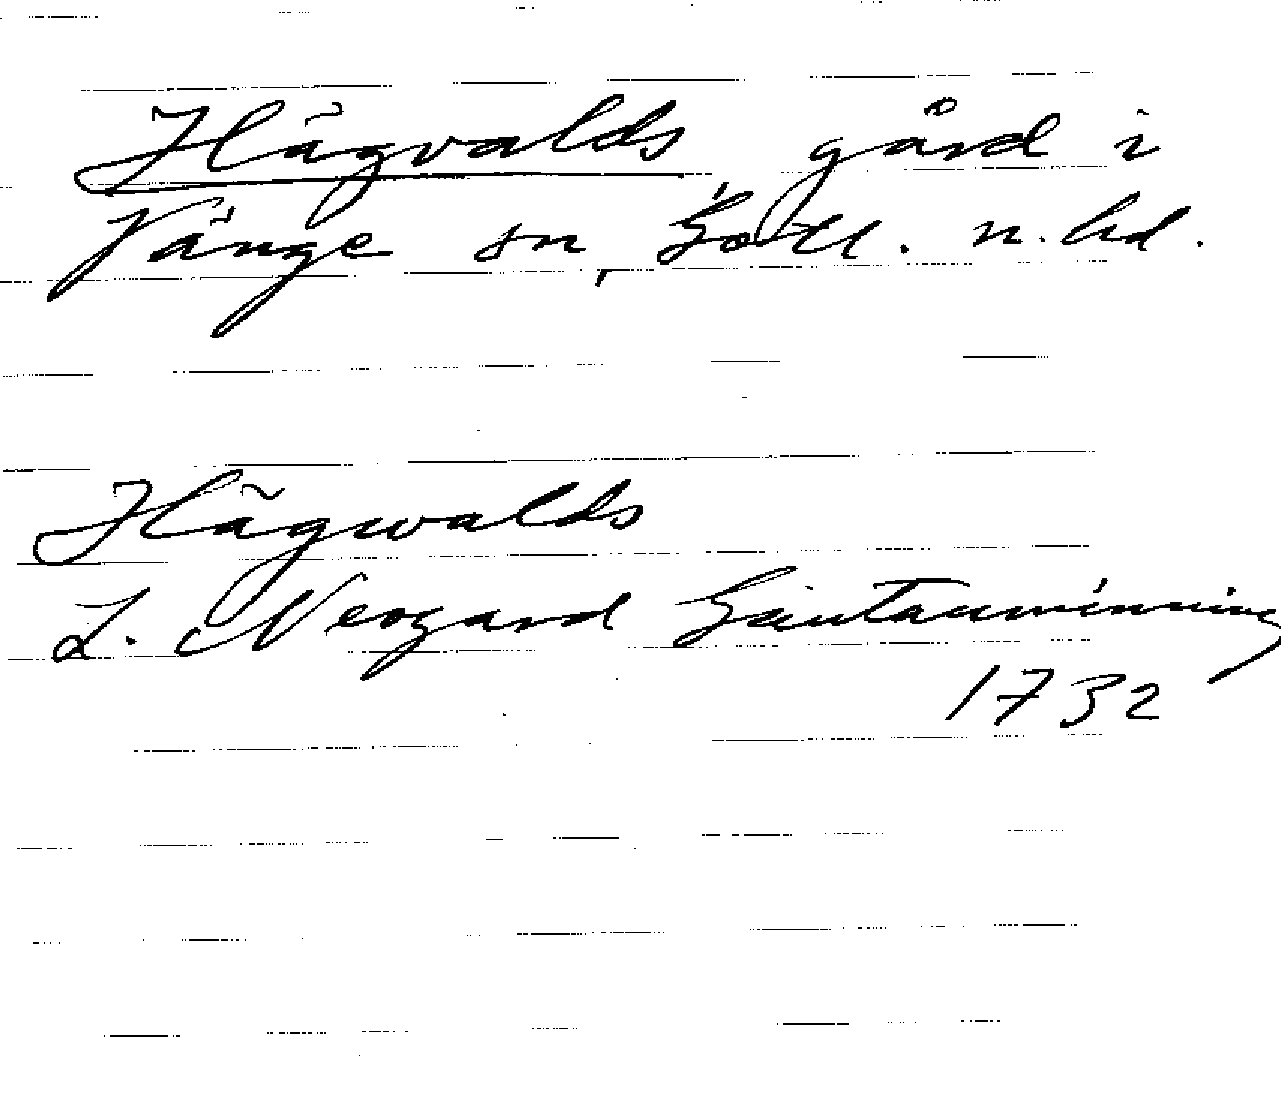 Hägvalds gård i
Vänge sn, Gotl. n. hd.
Hägwalds
L. Neogard Gautauminning
1732